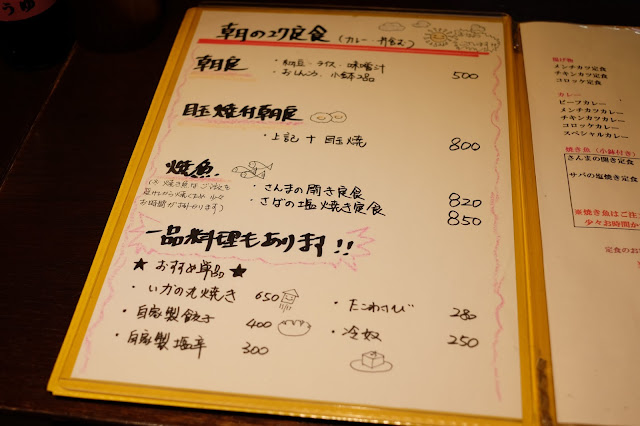 うゆ
朝の27定食 (カレー・丼含む)
朝食
・納豆・ライス・味噌汁
・おしんこ、小鉢2品 500
目玉焼付朝食
・上記 + 目玉焼 800
焼魚
・さんまの開き定食 820
・さばの塩焼き定食 850
お時間がかかります)
一品料理もあります!!
★ おすすめ単品 ★
・いかの丸焼き 650
・自家製餃子 400
・自家製塩辛 300
・たこわさび 280
・冷奴 250
揚げ物
メンチカツ定食
チキンカツ定食
コロッケ定食
カレー
ビーフカレー
メンチカツカレー
チキンカツカレー
コロッケカレー
スペシャルカレー
焼き魚(小鉢付き)
さんまの開き定食
サバの塩焼き定食
※焼き魚はご注
少々お時間か
定食のお